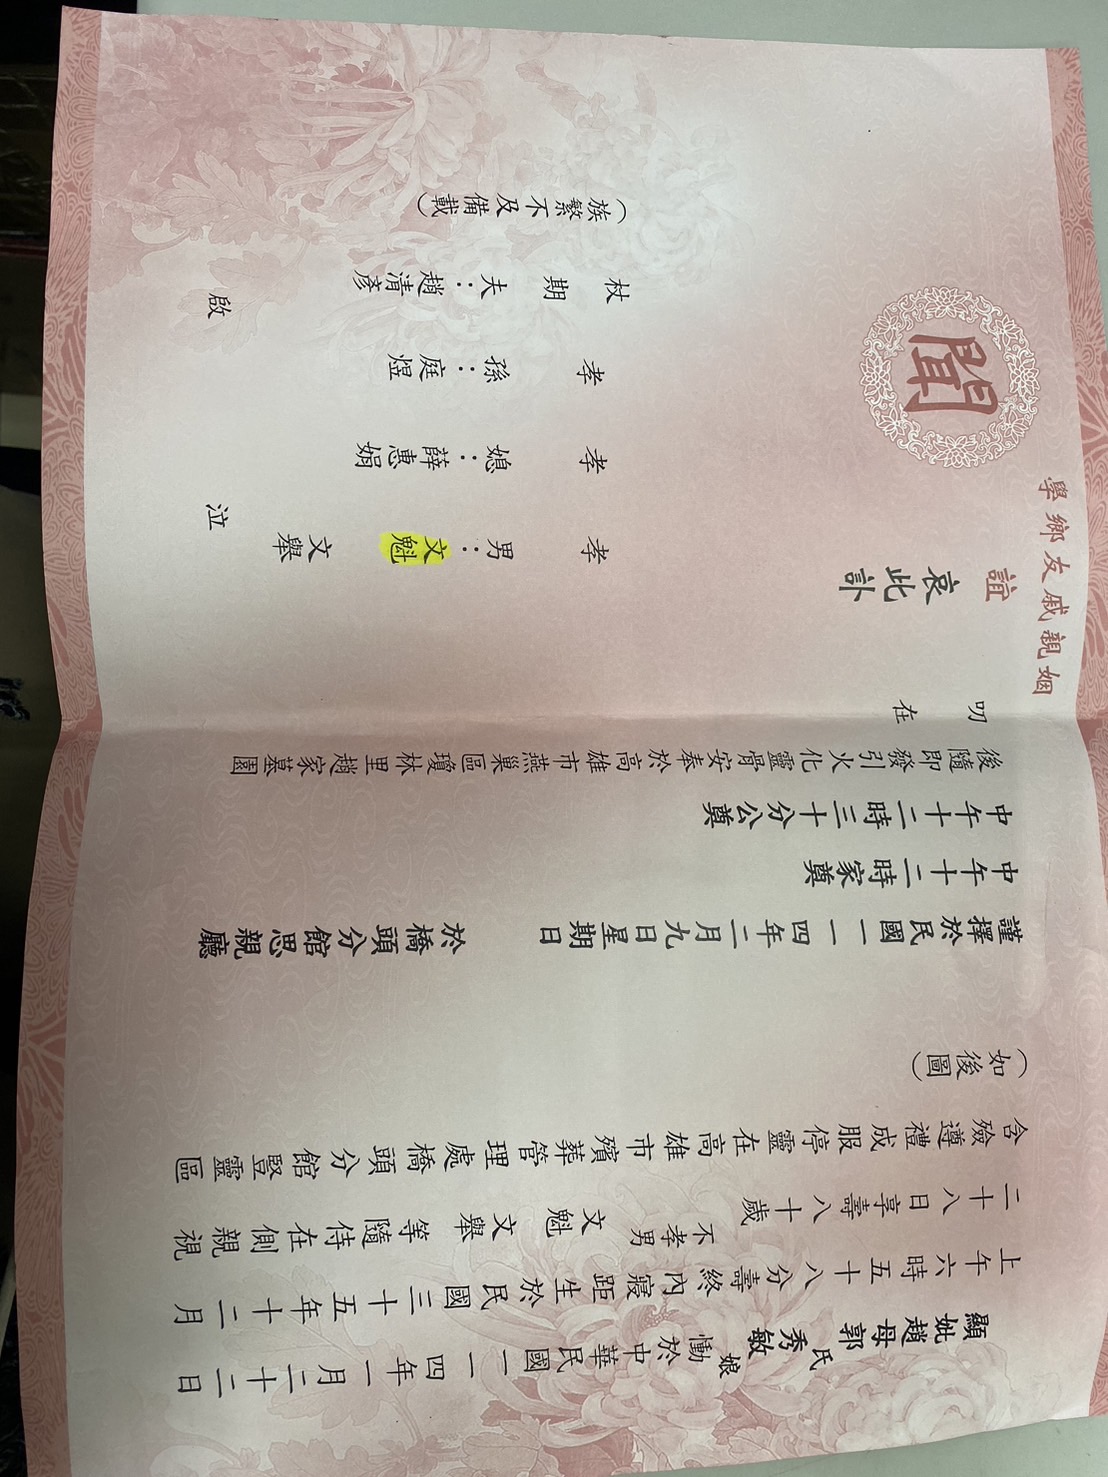 顯妣趙母郭氏秀敏娘慟於中華民國一一四年一月二十二日
上午六時五十八分壽終內寢距生於民國三十五年十二月
二十八日享壽八十歲不孝男文魁文舉等隨侍在側親視
含殮遵禮成服停靈在高雄市殯葬管理處橋頭分館豎靈區
(如後圖)
謹擇於民國一一四年二月九日星期日 於橋頭分館思親廳
中午十二時家奠
中午十二時三十分公奠
後隨即發引火化靈骨安奉於高雄市燕巢區瓊林里趙家墓園
叨在
姻親戚友鄉學
誼 哀此訃
聞
孝男：文魁 文舉
孝媳：薛惠娟
孝孫：庭煜
杖期夫：趙清彥
泣啟
(族繁不及備載)